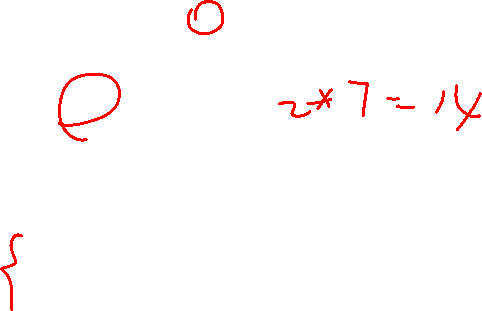 o
e
2*7=14
{